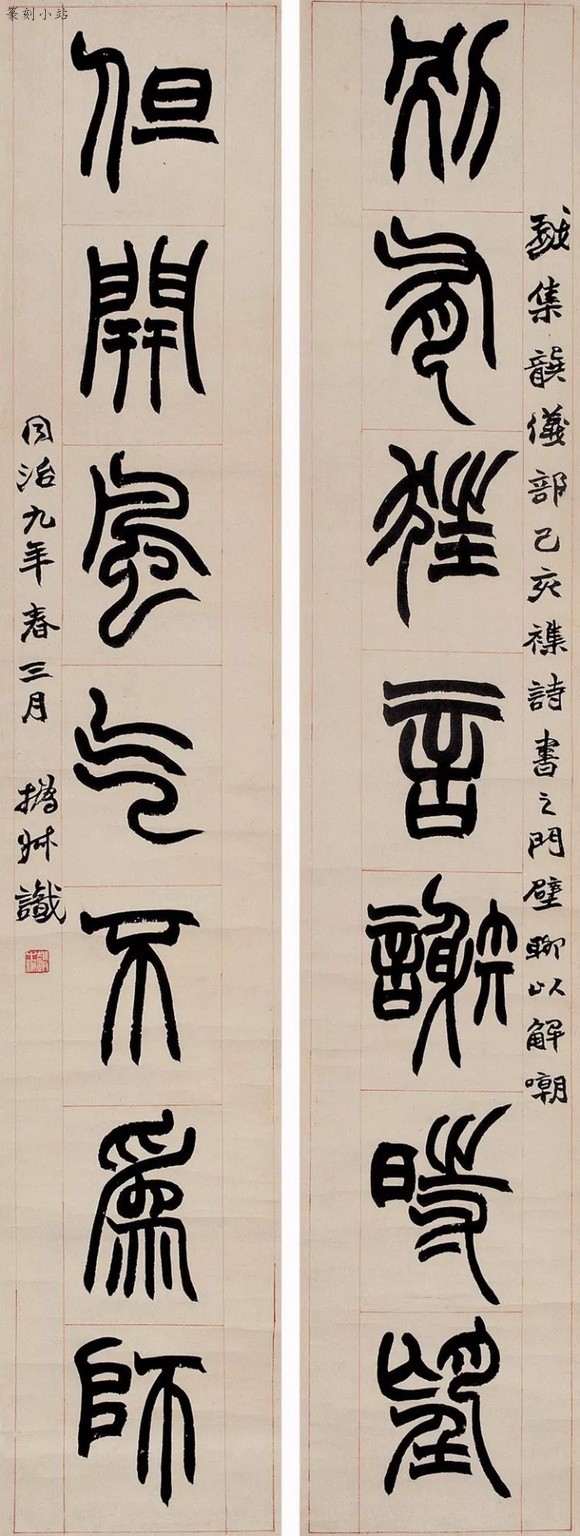 戲集龔儀部己亥襍詩書之門壁聊以解嘲
別有狂言謝時望
但開風气不爲師
同治九年春三月 撝叔識
篆刻小站